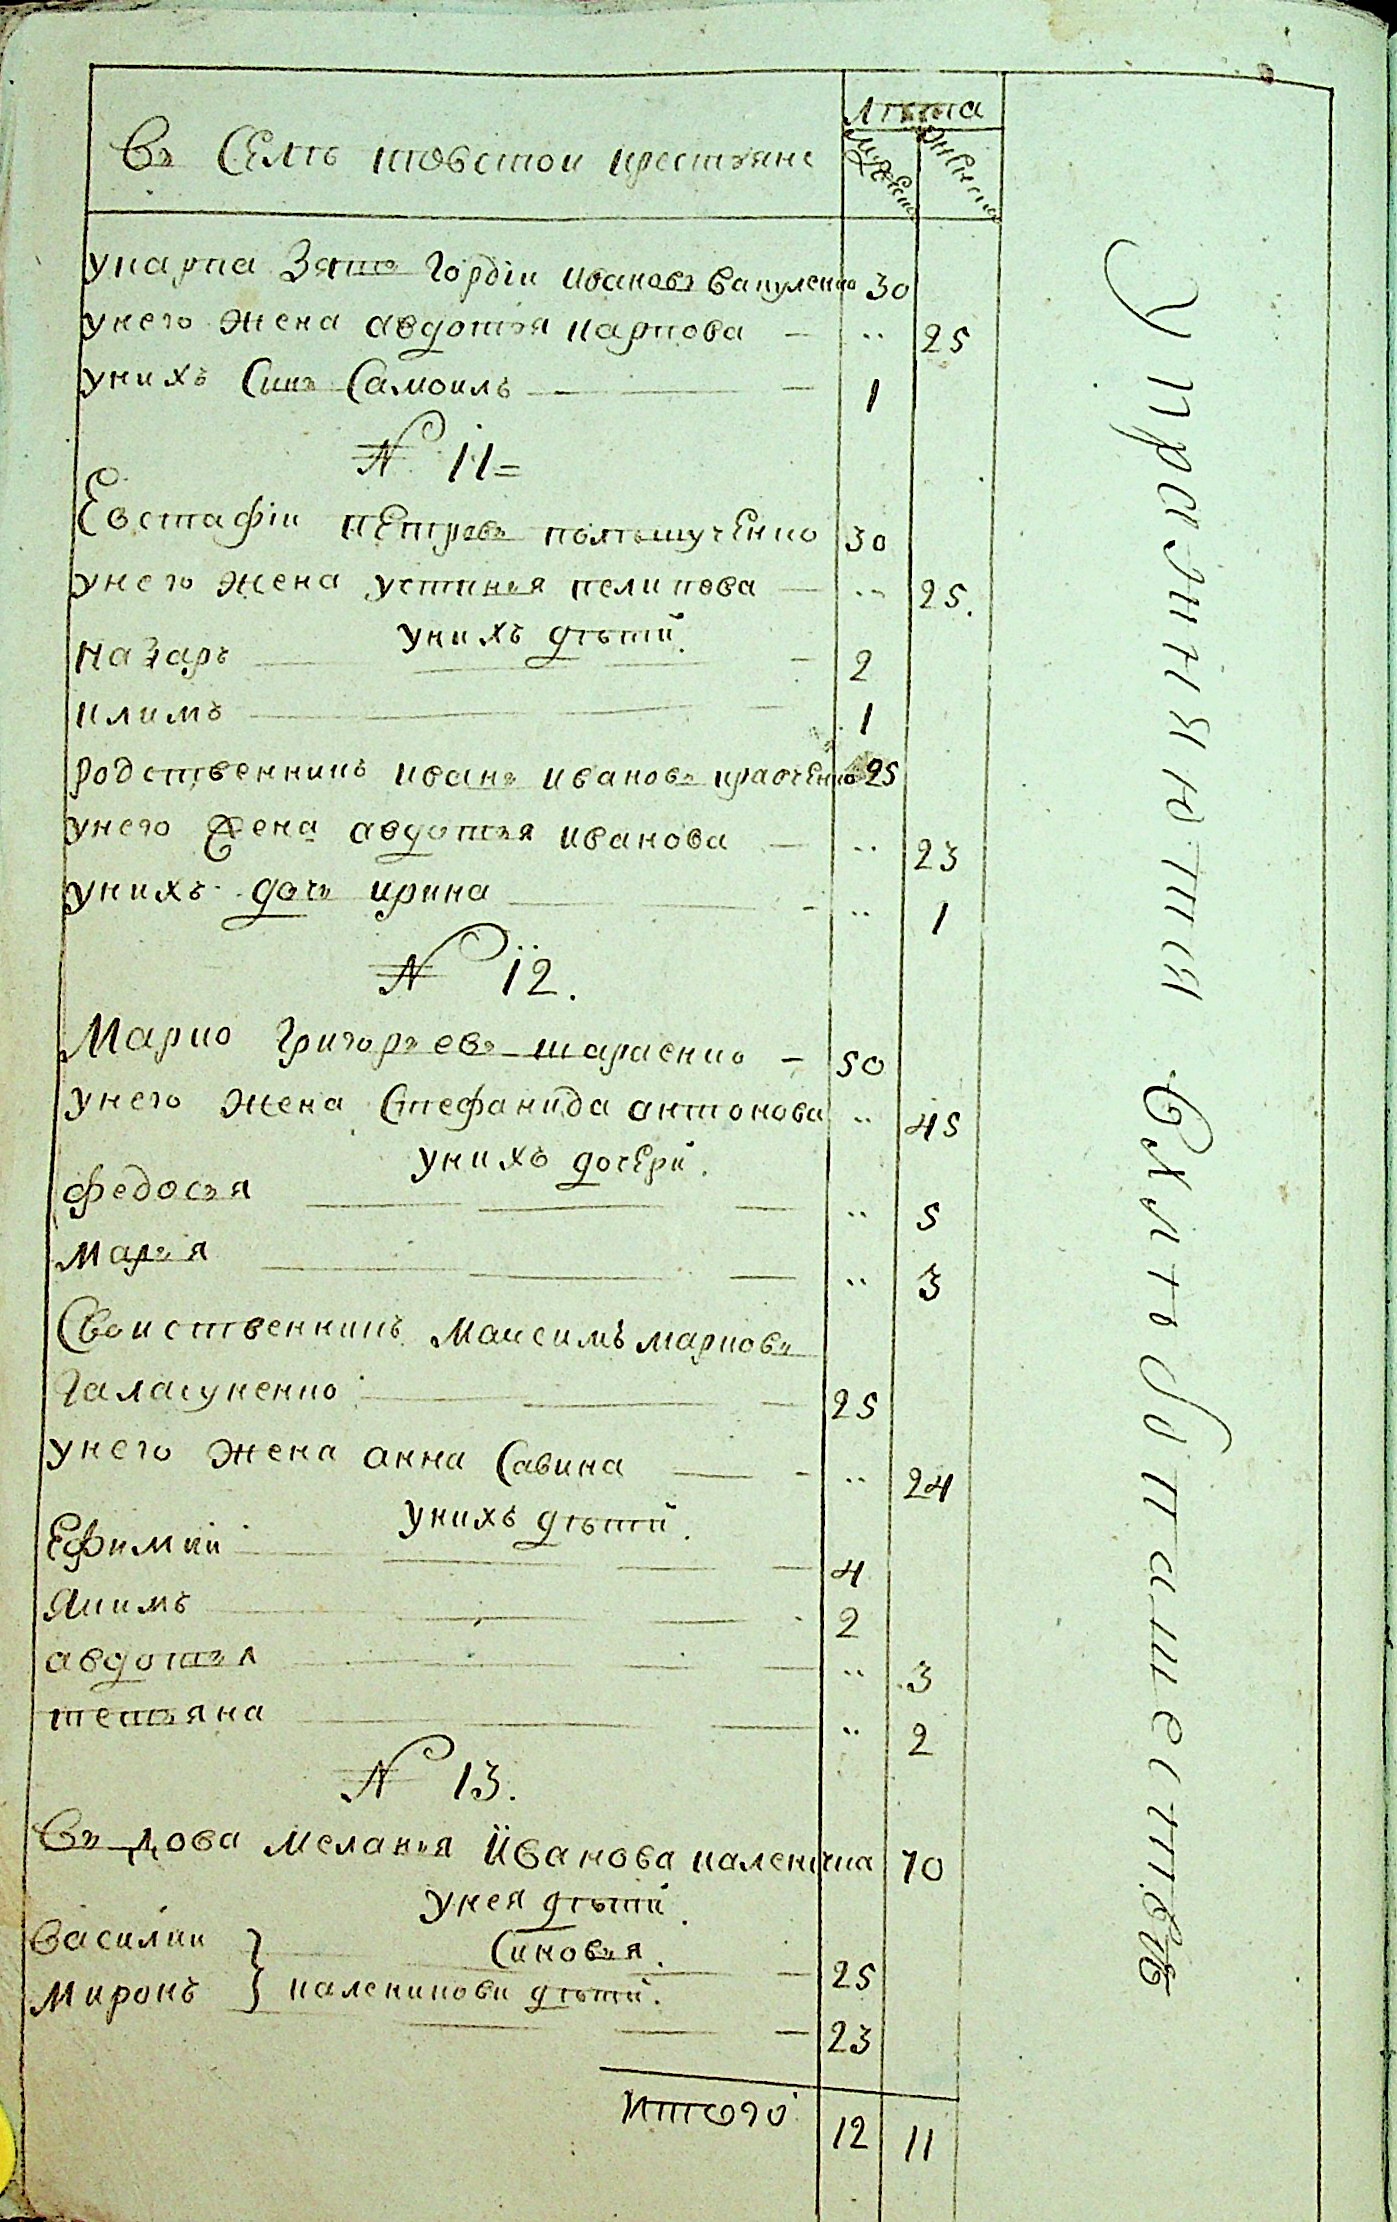 Въ Селѣ товстой крестьяне
лѣта
мужеска
женска
у карпа Зять Гордій Ивановъ Вакуленко 30
у него жена авдотья карпова — „ 25
у нихъ Синъ Самоилъ — 1
N 11=
Евстафій Петровъ полтпученко 30
у него жена устинья пелипова — „ 25.
у нихъ дѣтей.
назаръ — 2
климъ — 1
родственникъ иванъ ивановъ кравченко 25
у него жена авдотья иванова — „ 23
у нихъ дочь ирина — „ 1
N 12.
Марко Григорьевъ тарасенко — 50
у него жена Стефанида антонова „ 45
у нихъ дочери.
федосья — „ 5
марья — „ 3
Своиственникъ Максимъ марковъ
Галагуненко — 25
у него жена анна Савина — „ 24
у нихъ дѣтей.
Ефимий — 4
Якимъ — 2
авдотья — „ 3
тетяна — „ 2
N 13.
Въдова меланья Иванова каленичка 70
у нея дѣтей.
Синовья.
василий — 25
миронъ } каленикови дѣтей. — 23
Итого 12 11
Упражняются в хлѣбопашествѣ